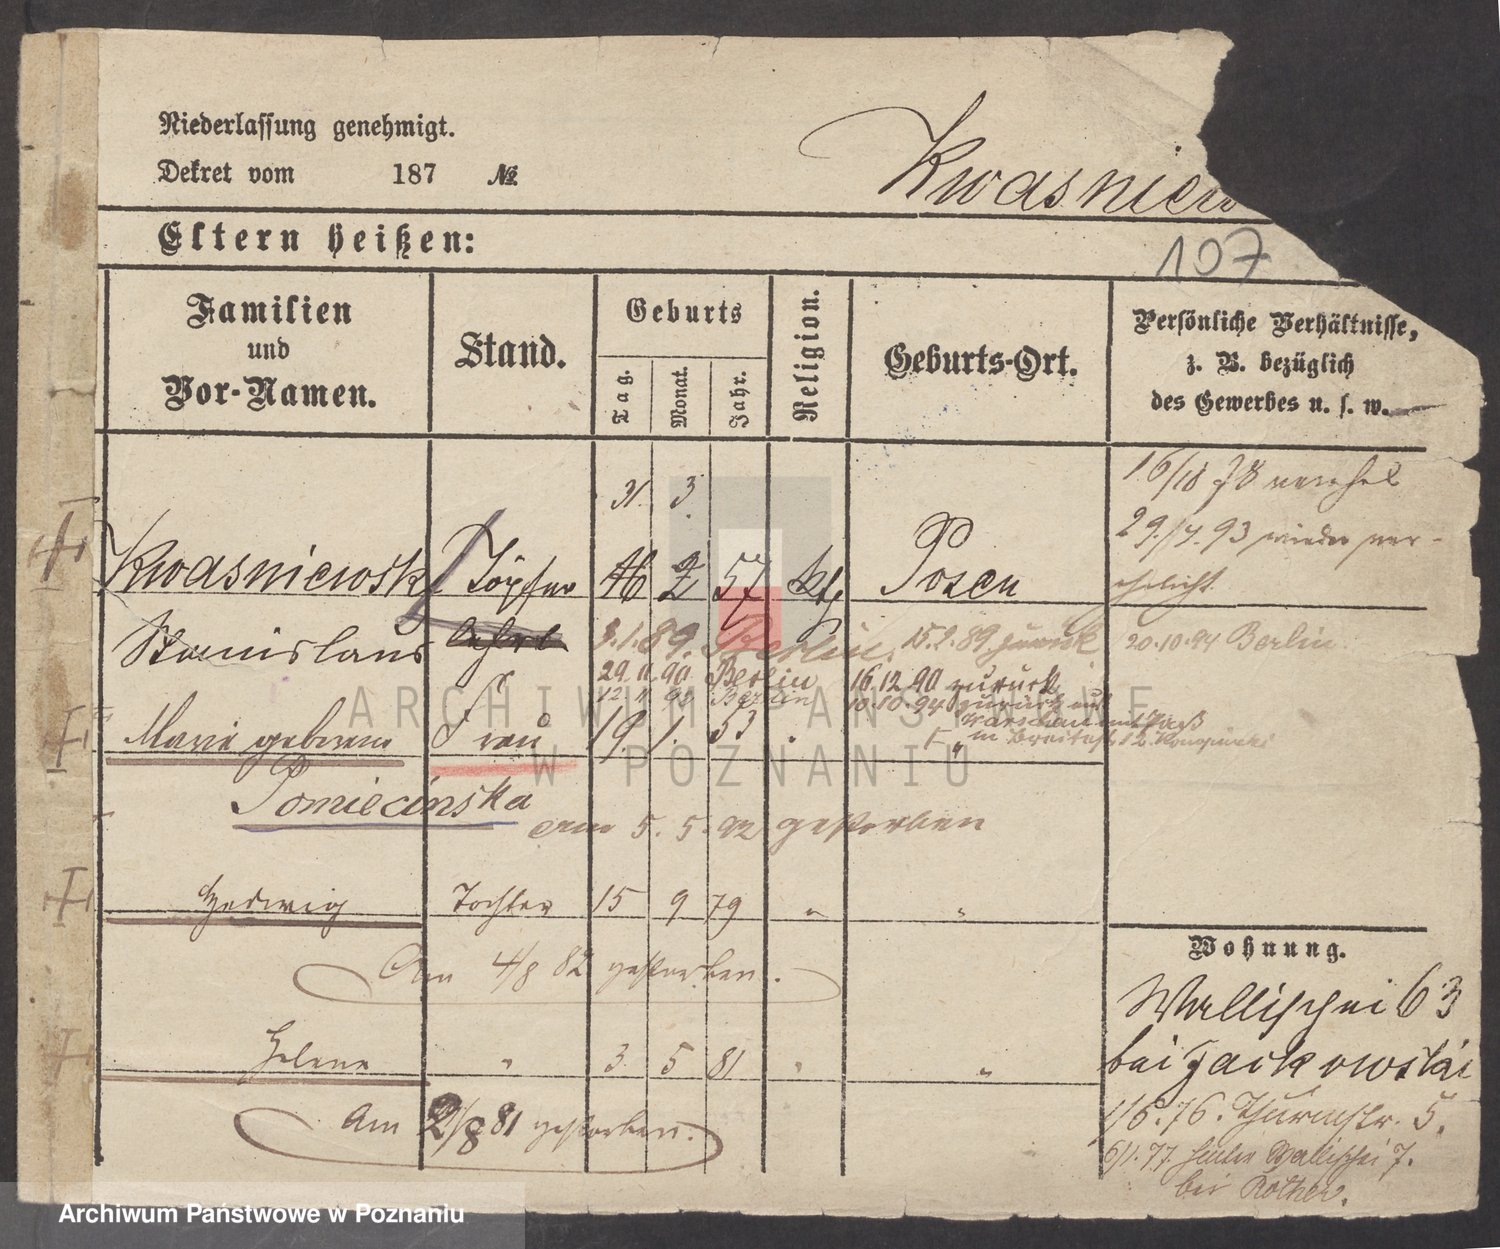 Niederlassung genehmigt.
Dekret vom 187 №
Kwasniew
107
Eltern heißen:
Familien und Vor-Namen.
Stand.
Geburts
Tag. Monat. Jahr.
Religion.
Geburts-Ort.
Persönliche Verhältnisse,
z. B. bezüglich
des Gewerbes u. s. w.
31. 3.
16/10 78 verehel
29./7. 93 wieder ver-
ehelicht
Kwasniewski Töpfer 2 57 kth Posen
Stanislaus lehrl.
3.1.89. Berlin. 15.2.89. zurück
20.10.94 Berlin.
29.11.90 Berlin 16.12.90 zurück
Berlin 10.10.94 zurück
Warschau mit Paß
Marie geborene Frau 19. 1. 53 "
Pomiecinska
am 5. 5. 92 gestorben
Hedwig Tochter 15 9 79 " "
Am 4/8 82 gestorben.
Helene " 3 5 81 " "
Am 2/8 81 gestorben.
Wohnung.
Wallischei 63
bei Jackowski
1/6. 76. Thurmstr. 5.
6/1. 77. hinter Wallischei 7.
bei Röther.
ARCHIWUM PAŃSTWOWE
W POZNANIU
Archiwum Państwowe w Poznaniu